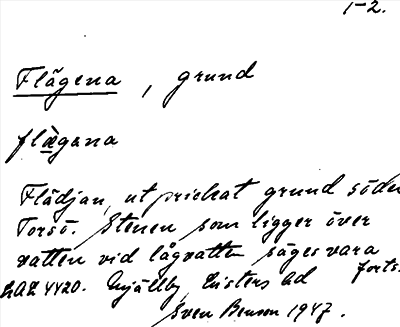 1-2.
Flägena, grund
flægəna
Flädjan, utprickat grund söder
Torsö. Stenen som ligger över
vatten vid lågvatten säges vara
forts.
LAL 4420. Mjällby, Listers hd
Sven Benson 1947.